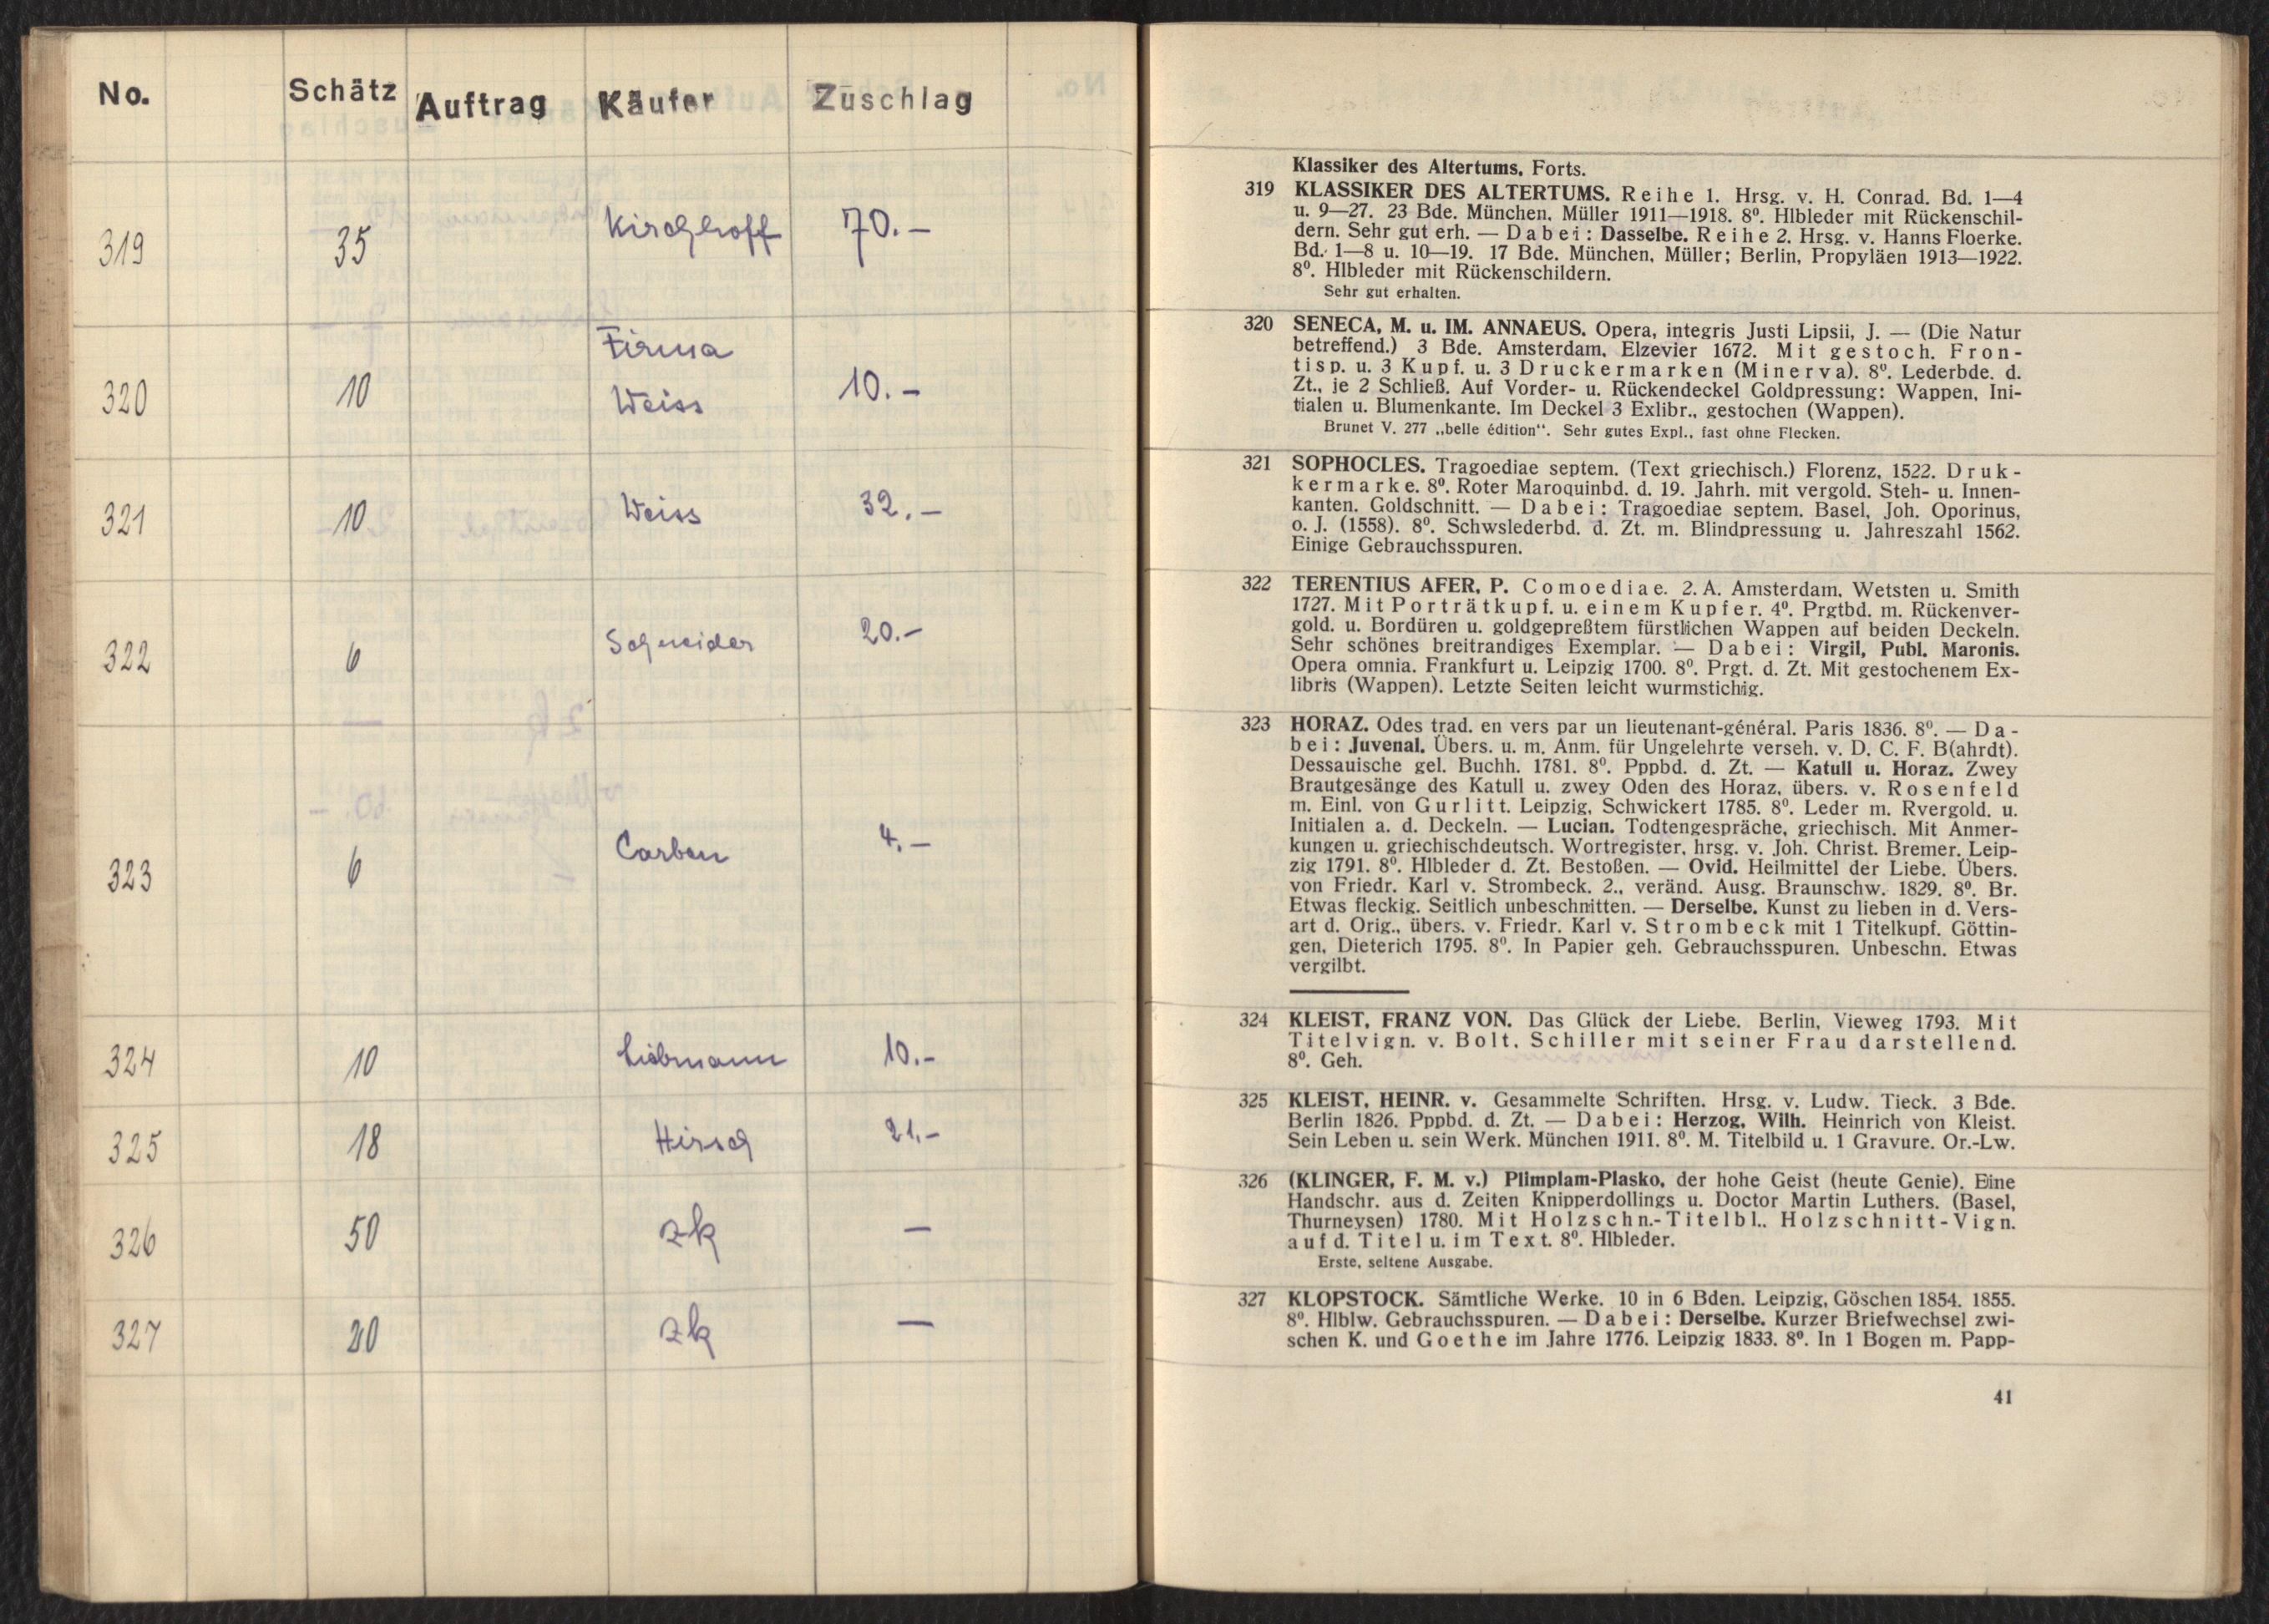 No. Schätz Auftrag Käufer Zuschlag
319 35 Kirchhoff 70.—
Firma
320 10 Weiss 10.—
321 10 Weiss 32.—
322 6 Schneider 20.—
323 6 4.—
324 10 10.—
325 18 Hirsch 21.—
326 50 zk —
327 20 zk —
Klassiker des Altertums, Forts.
319 KLASSIKER DES ALTERTUMS. Reihe 1. Hrsg. v. H. Conrad. Bd. 1—4
u. 9—27. 23 Bde. München, Müller 1911—1918. 8⁰. Hlbleder mit Rückenschil-
dern. Sehr gut erh. — Dabei: Dasselbe. Reihe 2. Hrsg. v. Hanns Floerke.
Bd. 1—8 u. 10—19. 17 Bde. München, Müller; Berlin, Propyläen 1913—1922.
8⁰. Hlbleder mit Rückenschildern.
Sehr gut erhalten.
320 SENECA, M. u. IM. ANNAEUS. Opera, integris Justi Lipsii, J. — (Die Natur
betreffend.) 3 Bde. Amsterdam, Elzevier 1672. Mit gestoch. Fron-
tisp. u. 3 Kupf. u. 3 Druckermarken (Minerva). 8⁰. Lederbde. d.
Zt., je 2 Schließ. Auf Vorder- u. Rückendeckel Goldpressung: Wappen, Ini-
tialen u. Blumenkante. Im Deckel 3 Exlibr., gestochen (Wappen).
Brunet V. 277 „belle édition“. Sehr gutes Expl., fast ohne Flecken.
321 SOPHOCLES. Tragoediae septem. (Text griechisch.) Florenz, 1522. Druk-
kermarke. 8⁰. Roter Maroquinbd. d. 19. Jahrh. mit vergold. Steh- u. Innen-
kanten. Goldschnitt. — Dabei: Tragoediae septem. Basel, Joh. Oporinus,
o. J. (1558). 8⁰. Schwslederbd. d. Zt. m. Blindpressung u. Jahreszahl 1562.
Einige Gebrauchsspuren.
322 TERENTIUS AFER, P. Comoediae. 2. A. Amsterdam, Wetsten u. Smith
1727. Mit Porträtkupf. u. einem Kupfer. 4⁰. Prgtbd. m. Rückenver-
gold. u. Bordüren u. goldgepreßtem fürstlichen Wappen auf beiden Deckeln.
Sehr schönes breitrandiges Exemplar. — Dabei: Virgil, Publ. Maronis.
Opera omnia. Frankfurt u. Leipzig 1700. 8⁰. Prgt. d. Zt. Mit gestochenem Ex-
libris (Wappen). Letzte Seiten leicht wurmstichig.
323 HORAZ. Odes trad. en vers par un lieutenant-général. Paris 1836. 8⁰. — Da-
bei: Juvenal. Übers. u. m. Anm. für Ungelehrte verseh. v. D. C. F. B(ahrdt).
Dessauische gel. Buchh. 1781. 8⁰. Pppbd. d. Zt. — Katull u. Horaz. Zwey
Brautgesänge des Katull u. zwey Oden des Horaz, übers. v. Rosenfeld
m. Einl. von Gurlitt. Leipzig, Schwickert 1785. 8⁰. Leder m. Rvergold. u.
Initialen a. d. Deckeln. — Lucian. Todtengespräche, griechisch. Mit Anmer-
kungen u. griechischdeutsch. Wortregister, hrsg. v. Joh. Christ. Bremer. Leip-
zig 1791. 8⁰. Hlbleder d. Zt. Bestoßen. — Ovid. Heilmittel der Liebe. Übers.
von Friedr. Karl v. Strombeck. 2., veränd. Ausg. Braunschw. 1829. 8⁰. Br.
Etwas fleckig. Seitlich unbeschnitten. — Derselbe. Kunst zu lieben in d. Vers-
art d. Orig., übers. v. Friedr. Karl v. Strombeck mit 1 Titelkupf. Göttin-
gen, Dieterich 1795. 8⁰. In Papier geh. Gebrauchsspuren. Unbeschn. Etwas
vergilbt.
324 KLEIST, FRANZ VON. Das Glück der Liebe. Berlin, Vieweg 1793. Mit
Titelvign. v. Bolt, Schiller mit seiner Frau darstellend.
8⁰. Geh.
325 KLEIST, HEINR. v. Gesammelte Schriften. Hrsg. v. Ludw. Tieck. 3 Bde.
Berlin 1826. Pppbd. d. Zt. — Dabei: Herzog, Wilh. Heinrich von Kleist.
Sein Leben u. sein Werk. München 1911. 8⁰. M. Titelbild u. 1 Gravure. Or.-Lw.
326 (KLINGER, F. M. v.) Plimplam-Plasko, der hohe Geist (heute Genie). Eine
Handschr. aus d. Zeiten Knipperdollings u. Doctor Martin Luthers. (Basel,
Thurneysen) 1780. Mit Holzschn.-Titelbl., Holzschnitt-Vign.
auf d. Titel u. im Text. 8⁰. Hlbleder.
Erste, seltene Ausgabe.
327 KLOPSTOCK. Sämtliche Werke. 10 in 6 Bden. Leipzig, Göschen 1854. 1855.
8⁰. Hlblw. Gebrauchsspuren. — Dabei: Derselbe. Kurzer Briefwechsel zwi-
schen K. und Goethe im Jahre 1776. Leipzig 1833. 8⁰. In 1 Bogen m. Papp-
41